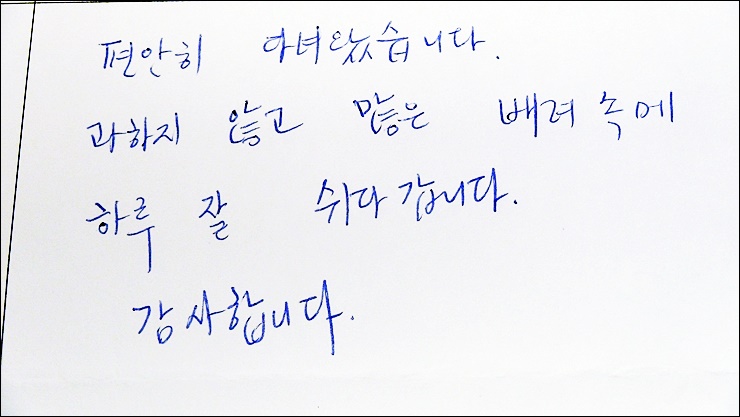 편안히 다녀왔습니다.
과하지 않고 많은 배려 속에
하루 잘 쉬다 갑니다.
감사합니다.